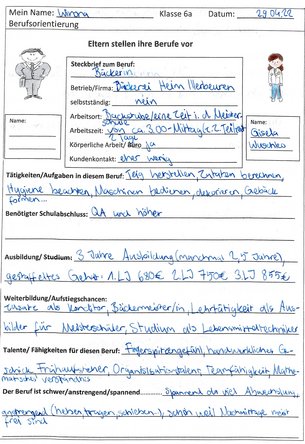 Mein Name: Winona Klasse 6a Datum: 29.04.22
Berufsorientierung
Eltern stellen ihre Berufe vor
Steckbrief zum Beruf:
Bäckerin
Betrieb/Firma: Bäckerei Heim
selbstständig: nein
Arbeitsort: Backstube/eine Zeit i. d. Meister-
schule
Arbeitszeit: von ca 3.00-Mittag/z.Z Teilzeit
2 Tage
Körperliche Arbeit/ Büro ja
Kundenkontakt: eher wenig
Name:
Name:
Gisela
Tätigkeiten/Aufgaben in diesem Beruf: Teig herstellen, Zutaten berechnen,
Hygiene beachten, Maschinen bedienen, dekorieren, Gebäck
formen...
Benötigter Schulabschluss: QA und höher
Ausbildung/ Studium: 3 Jahre Ausbildung (manchmal 2,5 Jahre),
gestaffeltes Gehalt: 1.LJ 680€ 2LJ 750€ 3LJ 855€
Weiterbildung/Aufstiegschancen:
Zusatz als Konditor, Bäckermeister/in, Lehrtätigkeit als Aus-
bilder für Meisterschüler, Studium als Lebensmitteltechniker
Talente/ Fähigkeiten für diesen Beruf: Fingerspitzengefühl, handwerkliches Ge-
schick, Frühaufsteher, Organisationstalent, Teamfähigkeit, Mathe-
matisches Verständnis
Der Beruf ist schwer/anstrengend/spannend spannend da viel Abwechslung,
anstrengend (Mehl tragen, schieben), schön weil Nachmittage meist
frei sind